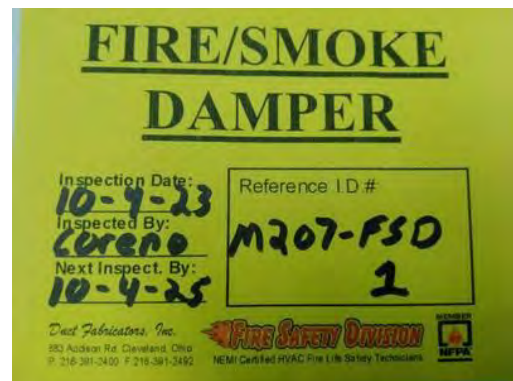 FIRE/SMOKE
DAMPER
Inspection Date:
10-4-23
Inspected By:
Coreno
Next Inspect. By:
10-4-25
Reference I.D.#
M207-FSD
1
Duct Fabricators, Inc.
883 Addison Rd. Cleveland, Ohio
P. 216-391-2400 F. 216-391-2492
FIRE SAFETY DIVISION
NEMI Certified HVAC Fire Life Safety Technicians
MEMBER
NFPA